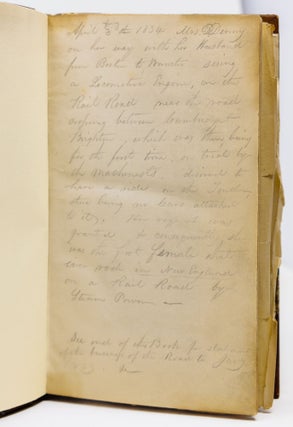 April 3d 1834 Mrs Denny
on her way with her Husband
from Boston to Worcester seeing
a Locomotive Engine, on the
Rail Road near the road
crossing between Cambridge &
Brighton, which was there being
for the first time, on trial by
the Machinests desired to
have a ride on the Tender,
there being no cars attached
to it. Her request was
granted & consequently she
was the first female that
ever rode in New England
on a Rail Road by
Steam Power
See end of the Book for
of the business of the Road to Jany